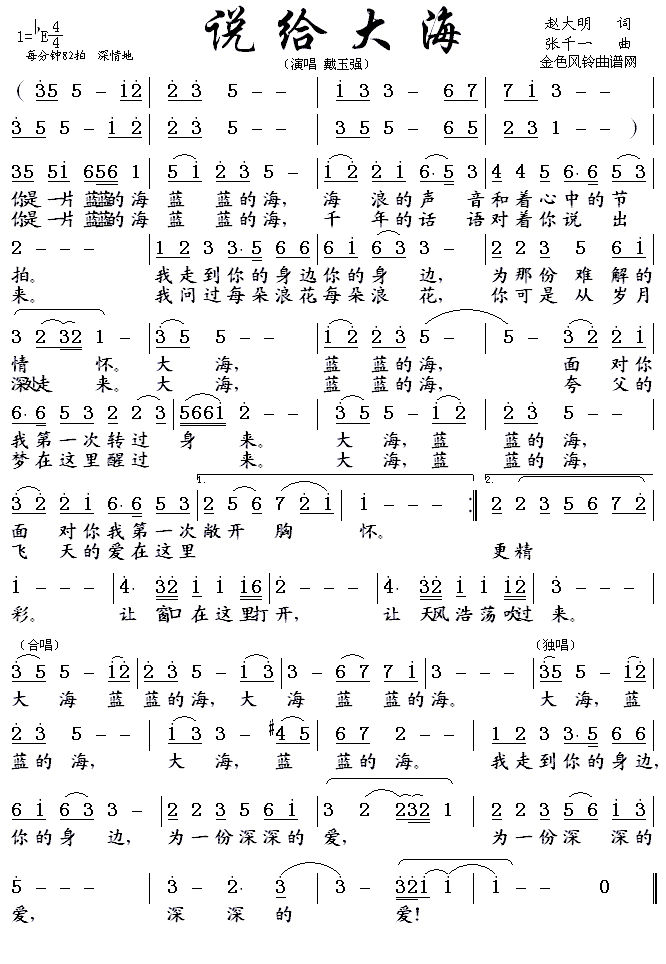 说给大海
1=♭E 4/4
每分钟82拍 深情地
(演唱 戴玉强)
赵大明 词
张千一 曲
金色风铃曲谱网
( 35 5 - 12 | 2 3 5 - | - - - - | 1 3 3 - 6 7 | 7 1 3 - - |
3 5 5 - 1 2 | 2 3 5 - - | 3 5 5 - 6 5 | 2 3 1 - - )
35 51 656 1 | 5 1 2 3 5 - | 1 2 2 1 6· 5 3 | 4 4 5 6· 6 5 3 |
你是一片蓝蓝的海 蓝 蓝的海, 海 浪的声 音和着心中的节
你是一片蓝蓝的海 蓝 蓝的海, 千 年的话 语对着你说 出
2 - - - | 1 2 3 3· 5 6 6 | 6 1 6 3 3 - | 2 2 3 5 6 1 |
拍。 我走到你的身边你的身 边, 为那份难解的
来。 我问过每朵浪花每朵浪 花, 你可是从岁月
3 2 32 1 - | 3 5 5 - - | 1 2 2 3 5 - | 5 - - 3 2 2 1 |
情 怀。大 海, 蓝 蓝的海, 面 对你
深处走 来。大 海, 蓝 蓝的海, 夸 父的
6· 6 5 3 2 2 3 | 5661 2 - - | 3 5 5 - 1 2 | 2 3 5 - - |
我第一次转过 身 来。 大 海,蓝 蓝的海,
梦在这里醒过 来。 大 海,蓝 蓝的海,
3 2 2 1 6· 6 5 3 | 1. 2 5 6 7 2 1 | 1 - - - :| 2. 2 2 3 5 6 7 2 |
面 对你我第一次敞开 胸 怀。
飞 天的爱在这里 更精
1 - - - | 4· 32 1 1 16 | 2 - - - | 4· 32 1 1 12 | 3 - - - |
彩。 让 窗口在这里打开, 让 天风浩荡吹过 来。
(合唱) (独唱)
3 5 5 - 12 | 2 3 5 - 1 3 | 3 - 6 7 7 1 | 3 - - - | 35 5 - 12 |
大 海 蓝 蓝的海,大 海 蓝 蓝的海。 大 海,蓝
2 3 5 - - | 1 3 3 - #4 5 | 6 7 2 - - | 3 2 3 3· 5 6 6 |
蓝的海, 大 海, 蓝 蓝的海。 我走到你的身边,
6 1 6 3 3 - | 2 2 3 5 6 1 | 3 2 232 1 | 2 2 3 5 6 1 |
你的身 边, 为一份深深的 爱, 为一份深 深的
5 - - - | 3 - 2· 3 | 3 - - - | 321 1 1 | 1 - - 0 ‖
爱, 深 深 的 爱!